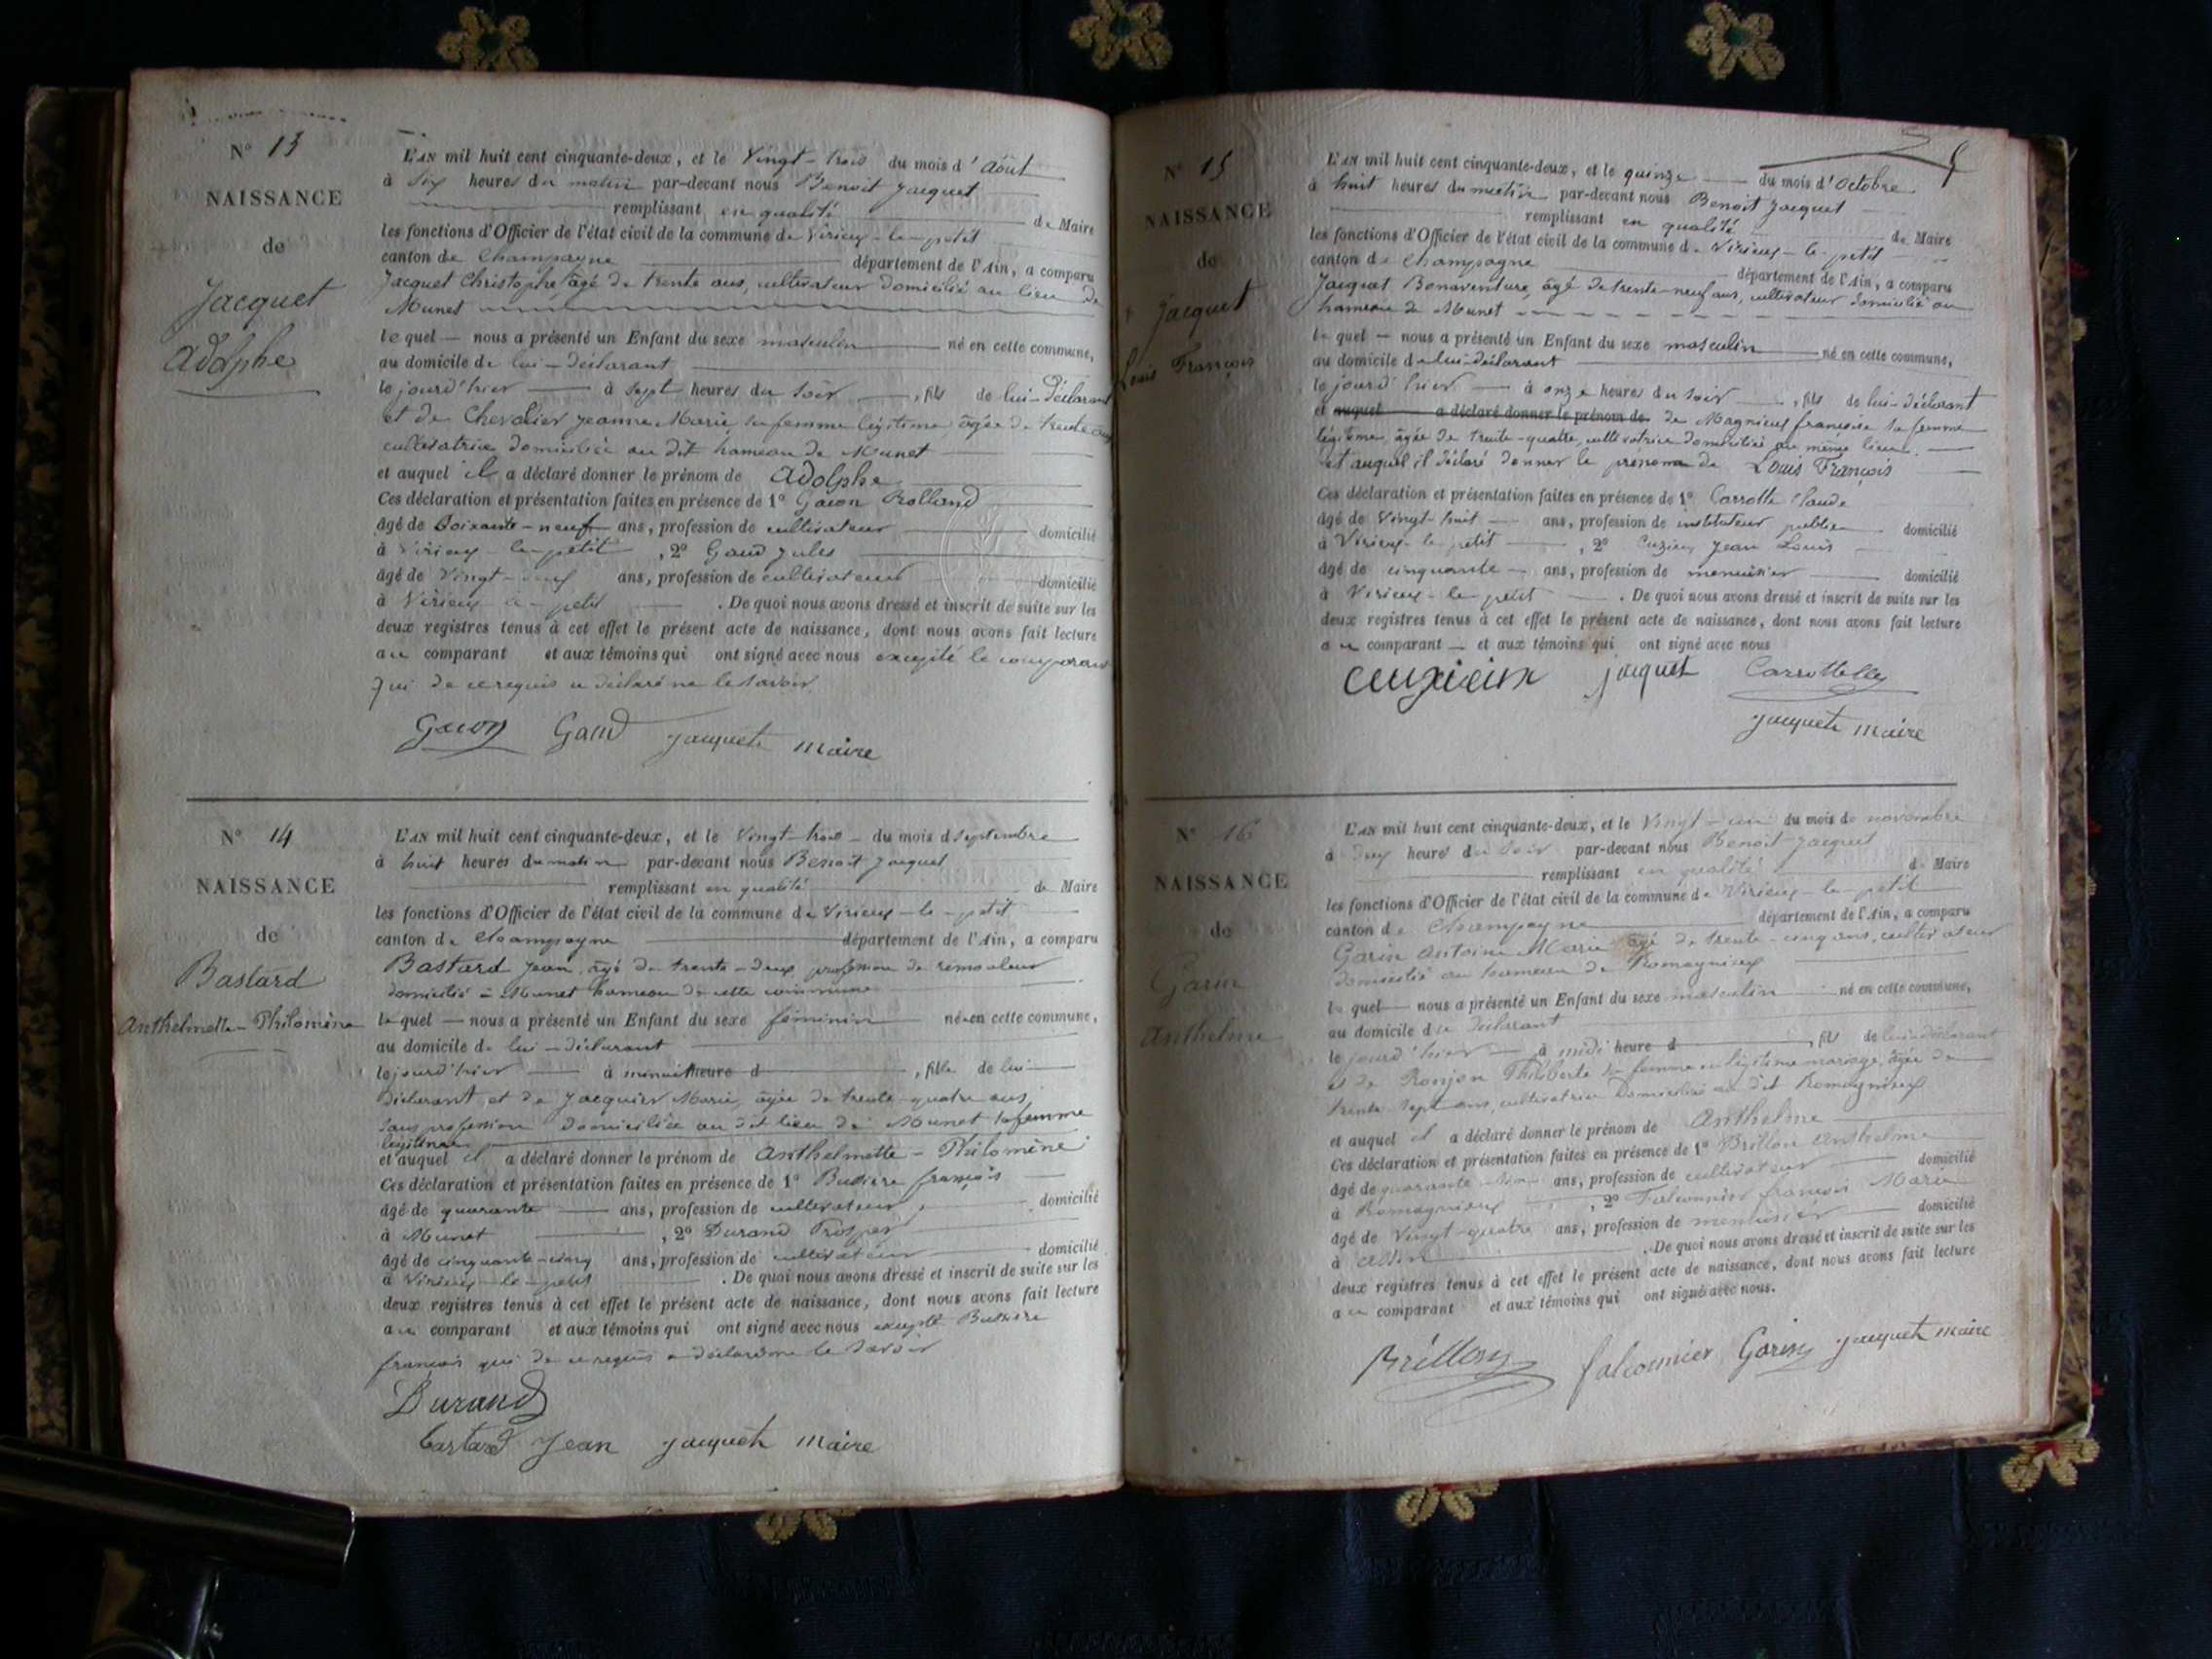 N° 13
NAISSANCE
de
Jacquet
Adolphe
L'AN mil huit cent cinquante-deux, et le Vingt-trois du mois d'Août
à six heures du matin par-devant nous Benoit Jacquet
remplissant en qualité de Maire
les fonctions d'Officier de l'état civil de la commune de Virieux-le-petit
canton de Champagne département de l'Ain, a comparu
Jacquet Christophe, âgé de trente ans, cultivateur domicilié au lieu de
Munet
lequel nous a présenté un Enfant du sexe masculin né en cette commune,
au domicile de lui-déclarant
le jourd'hier à sept heures du soir, fils de lui-déclarant
et de Chevalier Jeanne Marie, sa femme légitime, âgée de trente ans
cultivatrice domiciliée au dit hameau de Munet
et auquel il a déclaré donner le prénom de Adolphe
Ces déclaration et présentation faites en présence de 1° Gacon Rolland
âgé de soixante-neuf ans, profession de cultivateur domicilié
à Virieux-le-petit, 2° Gaud Jules
âgé de Vingt- ans, profession de cultivateur domicilié
à Virieux-le-petit. De quoi nous avons dressé et inscrit de suite sur les
deux registres tenus à cet effet le présent acte de naissance, dont nous avons fait lecture
au comparant et aux témoins qui ont signé avec nous excepté le comparant
qui de ce requis a déclaré ne le savoir
Gacon Gaud Jacquet maire
N° 14
NAISSANCE
de
Bastard
Anthelmette-Philomène
L'AN mil huit cent cinquante-deux, et le Vingt-trois du mois d septembre
à huit heures du matin par-devant nous Benoit Jacquet
remplissant en qualité de Maire
les fonctions d'Officier de l'état civil de la commune de Virieux-le-petit
canton de Champagne département de l'Ain, a comparu
Bastard Jean, âgé de trente-deux, profession de rémouleur
domicilié à Munet hameau de cette commune
lequel nous a présenté un Enfant du sexe féminin née en cette commune,
au domicile de lui-déclarant
le jourd'hier à minuit heure d, fille de lui
déclarant et de Jacquier Marie, âgée de trente-quatre ans,
sans profession domiciliée au dit lieu de Munet sa femme
légitime
et auquel il a déclaré donner le prénom de Anthelmette-Philomène
Ces déclaration et présentation faites en présence de 1° Bussière françois
âgé de quarante ans, profession de cultivateur, domicilié
à Munet, 2° Durand Prosper
âgé de cinquante-cinq ans, profession de cultivateur domicilié
à Virieux-le-petit. De quoi nous avons dressé et inscrit de suite sur les
deux registres tenus à cet effet le présent acte de naissance, dont nous avons fait lecture
au comparant et aux témoins qui ont signé avec nous excepté Bussière
françois qui de ce requis a déclaré ne le savoir
Durand
bastard Jean Jacquet maire
N° 15
NAISSANCE
de
Jacquet
Louis François
L'AN mil huit cent cinquante-deux, et le quinze du mois d'Octobre
à huit heures du matin par-devant nous Benoit Jacquet
remplissant en qualité de Maire
les fonctions d'Officier de l'état civil de la commune de Virieux-le-petit
canton de Champagne département de l'Ain, a comparu
Jacquet Bonaventure, âgé de trente-neuf ans, cultivateur domicilié au
hameau de Munet
lequel nous a présenté un Enfant du sexe masculin né en cette commune,
au domicile de lui-déclarant
le jourd'hier à onze heures du soir, fils de lui-déclarant
et auquel a déclaré donner le prénom de de Magnieux françoise sa femme
légitime, âgée de trente-quatre, cultivatrice domiciliée au même lieu.
et auquel il déclaré donner le prénom de Louis François
Ces déclaration et présentation faites en présence de 1° Carrotte Claude
âgé de Vingt-huit ans, profession de instituteur public domicilié
à Virieux-le-petit, 2° Cuzieux Jean Louis
âgé de cinquante ans, profession de menuisier domicilié
à Virieux-le-petit. De quoi nous avons dressé et inscrit de suite sur les
deux registres tenus à cet effet le présent acte de naissance, dont nous avons fait lecture
au comparant et aux témoins qui ont signé avec nous
jacquet
Jacquet maire
N° 16
NAISSANCE
de
Garin
Anthelme
L'AN mil huit cent cinquante-deux, et le Vingt-un du mois de novembre
à deux heures du soir par-devant nous Benoit Jacquet
remplissant en qualité de Maire
les fonctions d'Officier de l'état civil de la commune de Virieux-le-petit
canton de Champagne département de l'Ain, a comparu
Garin Antoine Marie âgé de trente-cinq ans, cultivateur
domicilié au hameau de Romagnieux
lequel nous a présenté un Enfant du sexe masculin né en cette commune,
au domicile du déclarant
le jourd'hier à midi heure d, fils de lui-déclarant
et de Ronjon Philiberte sa femme en légitime mariage, âgée de
trente-sept ans, cultivatrice domiciliée au dit Romagnieux
et auquel il a déclaré donner le prénom de Anthelme
Ces déclaration et présentation faites en présence de 1° Brillon Anthelme
âgé de quarante- ans, profession de cultivateur domicilié
à Romagnieux, 2° Falconnier françois Marie
âgé de Vingt-quatre ans, profession de menuisier domicilié
à. De quoi nous avons dressé et inscrit de suite sur les
deux registres tenus à cet effet le présent acte de naissance, dont nous avons fait lecture
au comparant et aux témoins qui ont signé avec nous.
Brillon falconnier Garin Jacquet maire